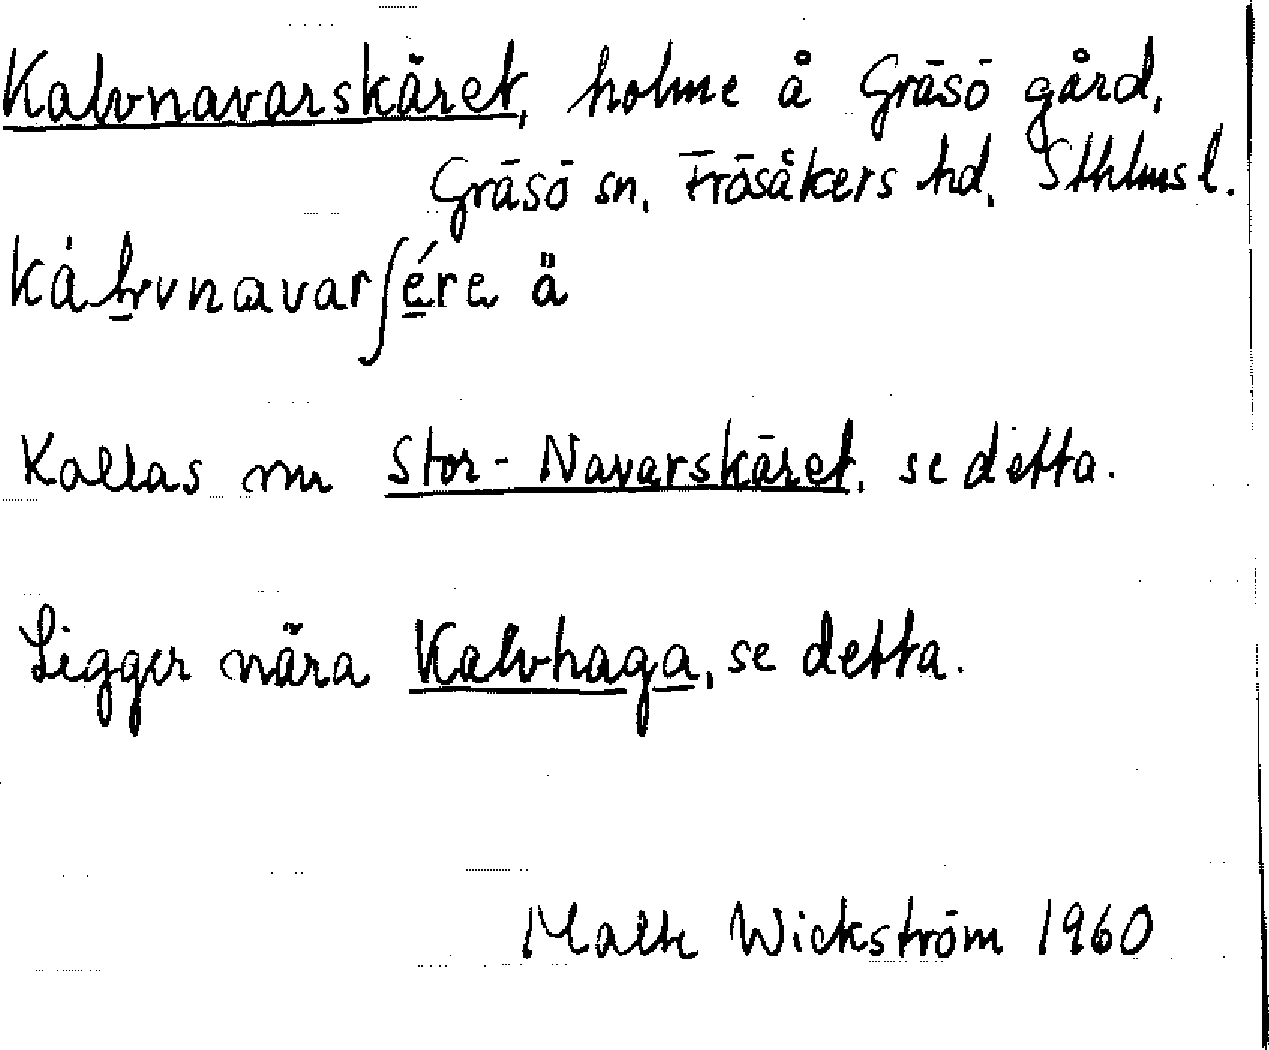 Kalvnavarskäret, holme å Gräsö gård,
Gräsö sn, Frösåkers hd, Sthlms l.
Kallas nu Stor-Navarskäret, se detta.
Ligger nära Kalvhaga, se detta.
Malte Wickström 1960